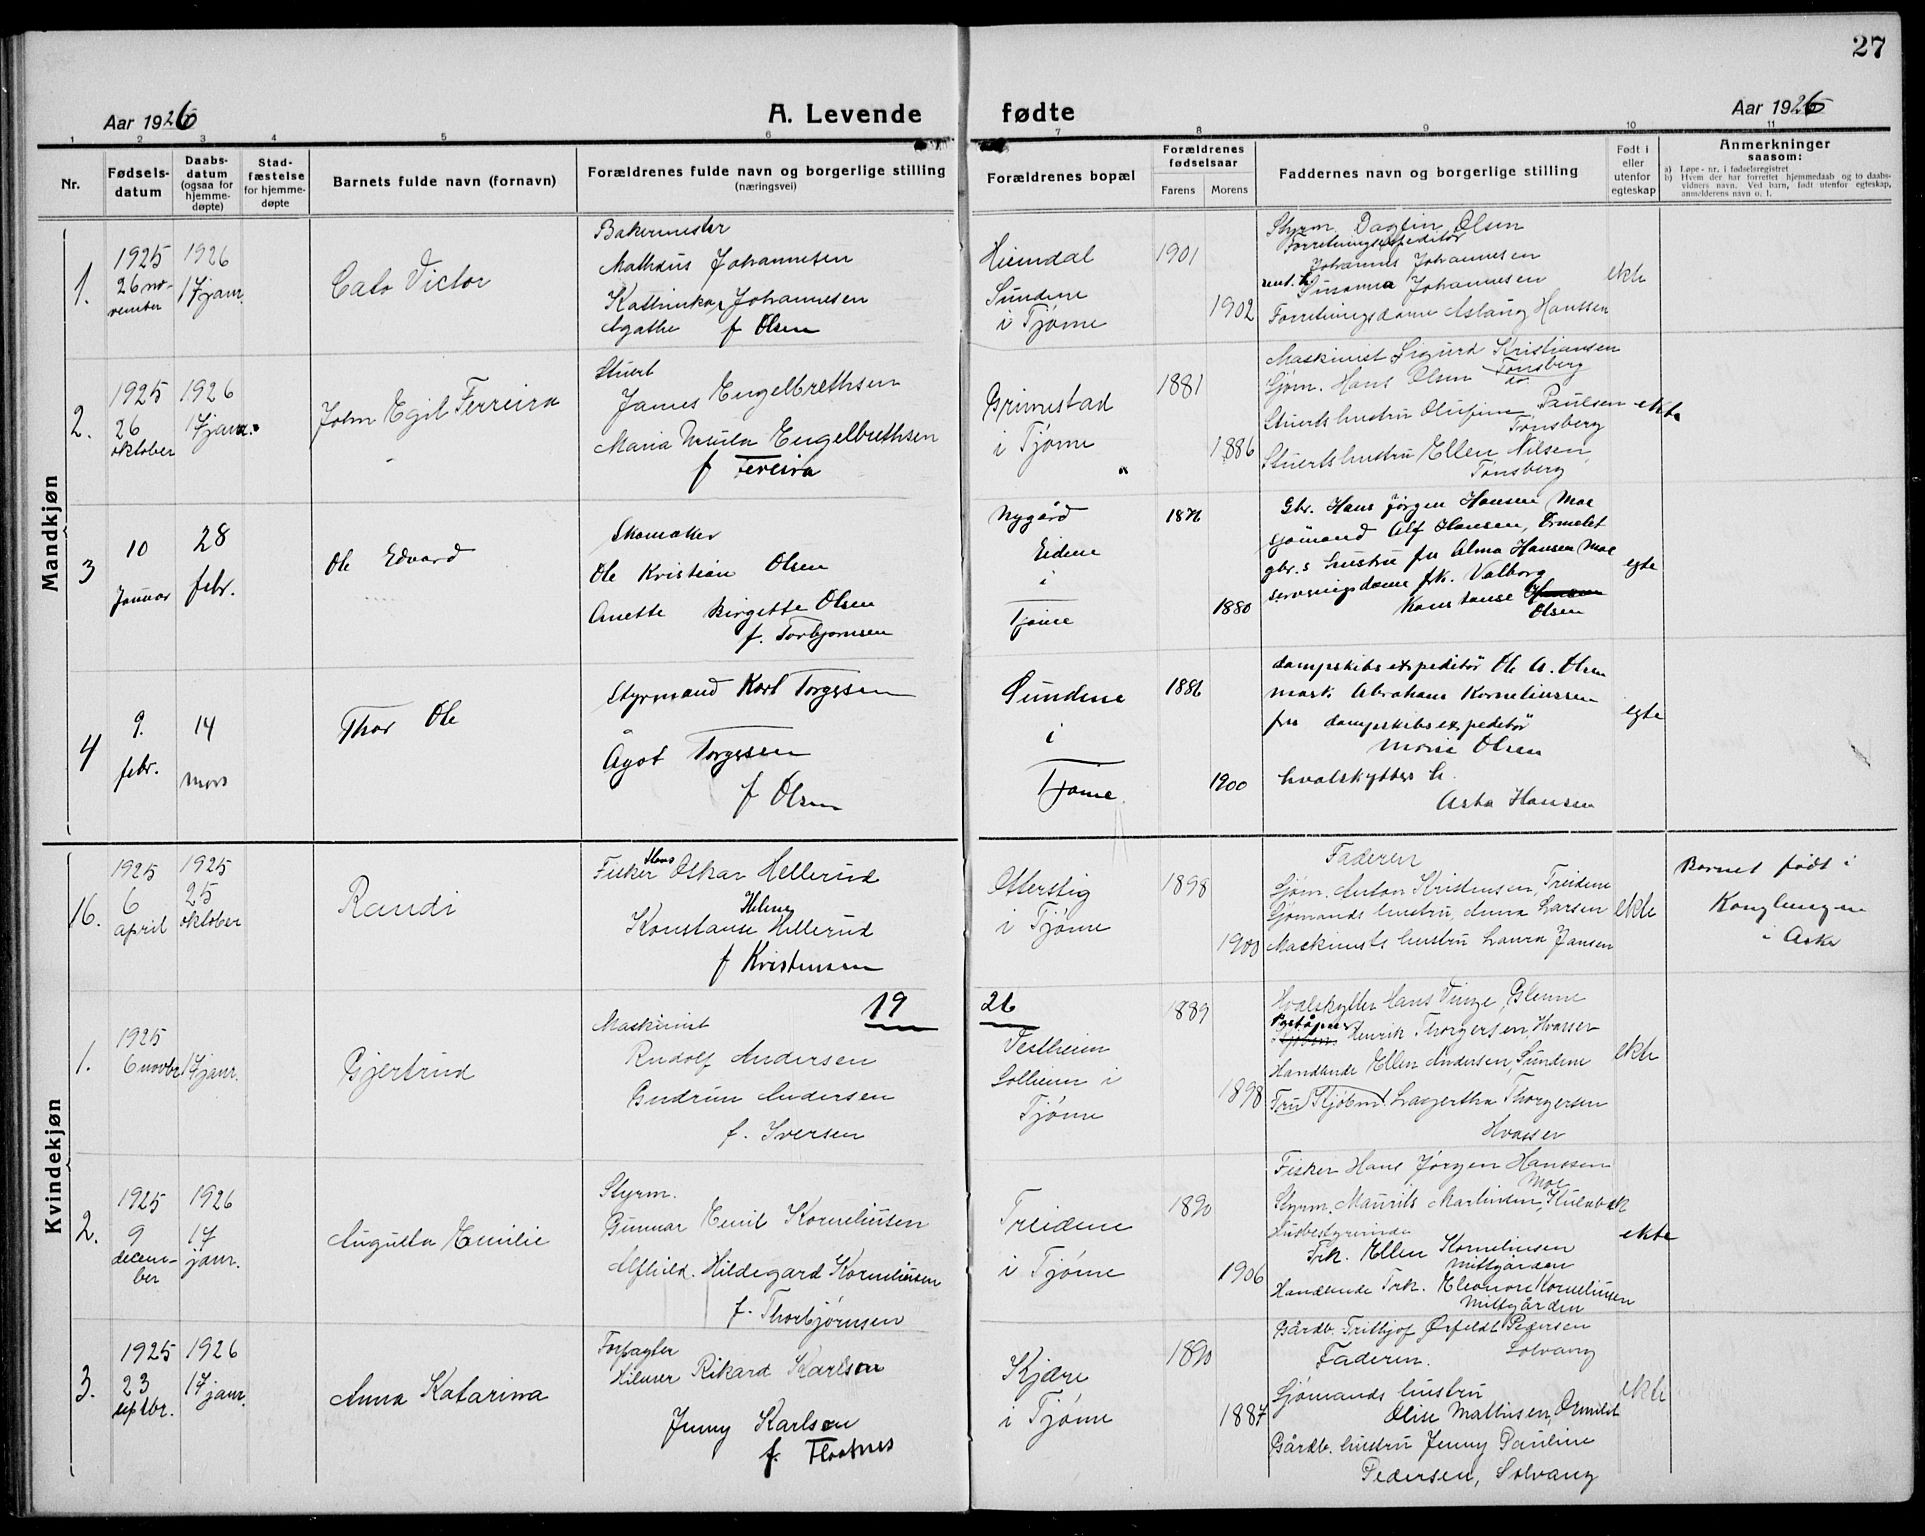 27
Aar 1926
A. Levende fødte
Aar 1926
1 2 3 4 5 6 7 8 9 10 11
Nr.
Fødsels-
datum
Daabs-
datum
(ogsaa for
hjemme-
døpte)
Stad-
fæstelse
for hjemme-
døpte
Barnets fulde navn (fornavn)
Forældrenes fulde navn og borgerlige stilling
(næringsvei)
Forældrenes bopæl
Forældrenes
fødselsaar
Farens Morens
Faddernes navn og borgerlige stilling
Født i
eller
utenfor
egteskap
Anmerkninger
saasom:
a) Løpe-nr. i fødselsregistret
b) Hvem der har forrettet hjemmedaab og to daabs-
vidners navn. Ved barn, født utenfor egteskap,
anmelderens navn o. l.
Mandkjøn
1.
1925
26 no-
vember
1926
17 janr.
Cato Victor
Bakermester
Mathæus Johannesen
Kathinka Johannesen
Agathe f Olsen
Heimdal
Sundene
i Tjøme
1901
1902
Styrm. Dagfin Olsen
Forretningsexpeditør
Johannes Johannesen
Susanna Johannesen
Forretningsdame Aslaug Hanssen
ekte
2.
1925
26
oktober
1926
17 janr.
John Egil Ferreira
Stuert
James Engelbrethsen
Maria Ursula Engelbrethsen
f Fereira
Grimestad
i Tjøme
1881
1886
Maskinist Sigurd Kristiansen
Tønsberg
Sjøm. Hans Olsen do.
Stuerts hustru Olufine Paulsen
Tønsberg
Stuerts hustru Ellen Nilsen
Tønsberg
ekte
3
10
Januar
28
febr.
Ole Edvard
Skomaker
Ole Kristian Olsen
Anette Birgette Olsen
f. Torbjørnsen
Nygård
Eidene
i
Tjøme
1876
1880
Gbr. Hans Jörgen Hansen Moe
sjömand Alf Hansen, Ormelet
gbr.s hustru fru Alma Hansen Moe
serveringsdame frk. Valborg
Konstanse Hansen
Olsen
egte
4
9.
febr.
14
mars
Thor Ole
Styrmand Karl Torgersen
Ågot Torgersen
f Olsen
Sundene
i
Tjøme.
1886
1900
dampskibsexpeditör Ole A. Olsen
mask. Abraham Korneliussen
fru dampskibsexpeditör
Marie Olsen
hvalskytters h.
Asta Hansen
egte
Kvindekjøn
16.
1925
6
april
1925
25
oktober
Randi
Hans
Fisker Oskar Hellerud
Helene
Konstanse Hellerud
f Kristensen
Otterstig
i Tjøme
1898
1900
Faderen
Sjøm. Anton Kristensen, Treidene
Sjømands hustru, Anna Larsen
Maskinists hustru Laura Jansen
ekte
Barnet født i
Konglungen
i Asker
19 26
1.
1925
6 novbr
17 janr.
Gjertrud
Maskinist
Rudolf Andersen
Gudrun Andersen
f. Iversen
Vestheim
Solheim i
Tjøme
1889
1898
Hvalskytter Hans Vinge, Glenne
Poståpner
Henrik Thorgersen, Hvasser
Handlende Ellen Andersen, Sundene
Fru Kjøbm. Lagertha Thorgersen
Hvasser
ekte
2.
1925
9
decem-
ber
1926
17
janr.
Augusta Emilie
Styrm.
Gunnar Emil Korneliusen
Alfhild. Hildegard Korneliusen
f. Thorbjørnsen
Treidene
i Tjøme
1890
1906
Fisker Hans Jørgen Hanssen
Moe
Styrm. Maurits Martinsen, Kulebæk
Husbestyrerinde
Frk. Ellen Korneliusen
Midtgården
Handlende Frk. Eleonore Korneliusen
Midtgården
ekte
3.
1925
23
septbr.
1926
17 janr.
Anna Katarina
Forpagter
Hilmer Rikard Karlson
Jenny Karlson
f. Flaatnes
Kjære
i Tjøme
1890
1887
Gårdb. Frithjof Ørfeldt Pedersen
Solvang
Faderen.
Sjømands hustru
Olise Mathisen, Ormelet
Gårdb. hustru Jenny Pauline
Pedersen, Solvang
ekte